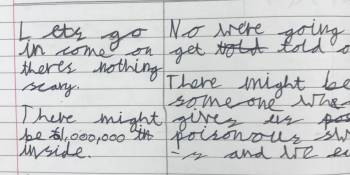 Lets go
in come on
theres nothing
scary.
There might
be $1,000,000 in
inside.
No were going
get told told o
There might be
someone who
gives us pos
poisonous sw
-s and we ea